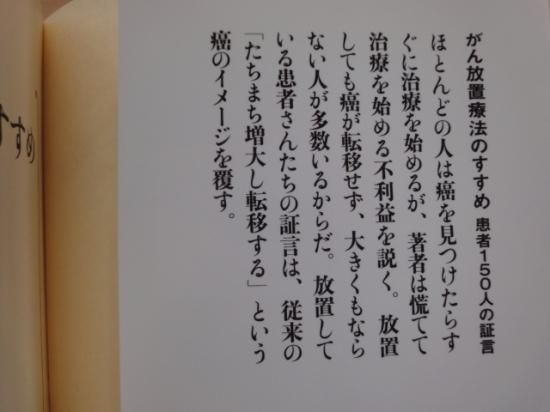 がん放置療法のすすめ 患者150人の証言
ほとんどの人は癌を見つけたらす
ぐに治療を始めるが、著者は慌てて
治療を始める不利益を説く。放置
しても癌が転移せず、大きくもなら
ない人が多数いるからだ。放置して
いる患者さんたちの証言は、従来の
「たちまち増大し転移する」という
癌のイメージを覆す。
すすめ